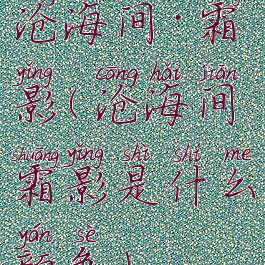 沧海间·霜
yǐng cāng hǎi jiān
影(沧海间
shuāng yǐng shì shí me
霜影是什么
yán sè
颜色)